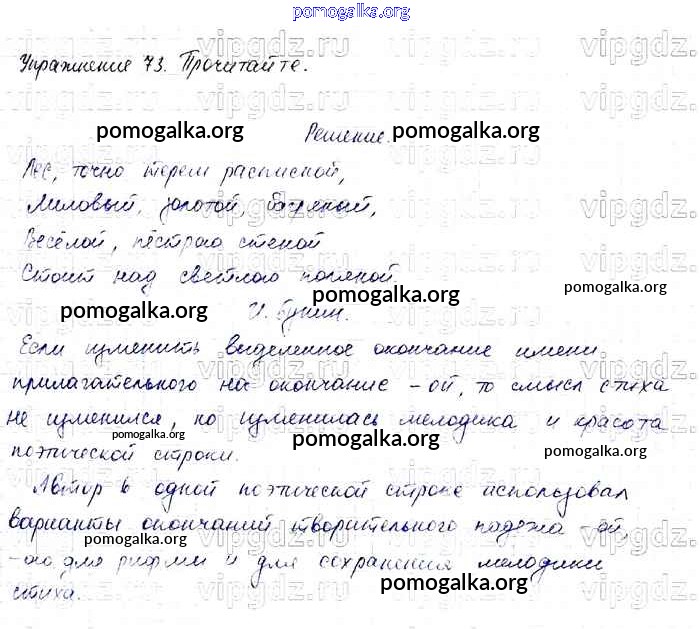 pomogalka.org
Упражнение 73. Прочитайте.
vipgdz.ru vipgdz.ru vipgdz
pomogalka.org pomogalka.org
Решение.
Лес, точно терем расписной,
Лиловый, золотой, багряный,
Весёлой, пёстрою стеной
Стоит над светлою поляной
pomogalka.org
pomogalka.org pomogalka.org
И. Бунин.
Если изменить выделенное окончание имени
прилагательного на окончание -ой, то смысл стиха
не изменился, но изменилась мелодика и красота
pomogalka.org pomogalka.org pomogalka.org
поэтической строки.
Автор в одной поэтической строке использовал
варианты окончаний творительного падежа -ой,
pomogalka.org pomogalka.org
-ою для рифмы и для сохранения мелодики
pomogalka.org
стиха.